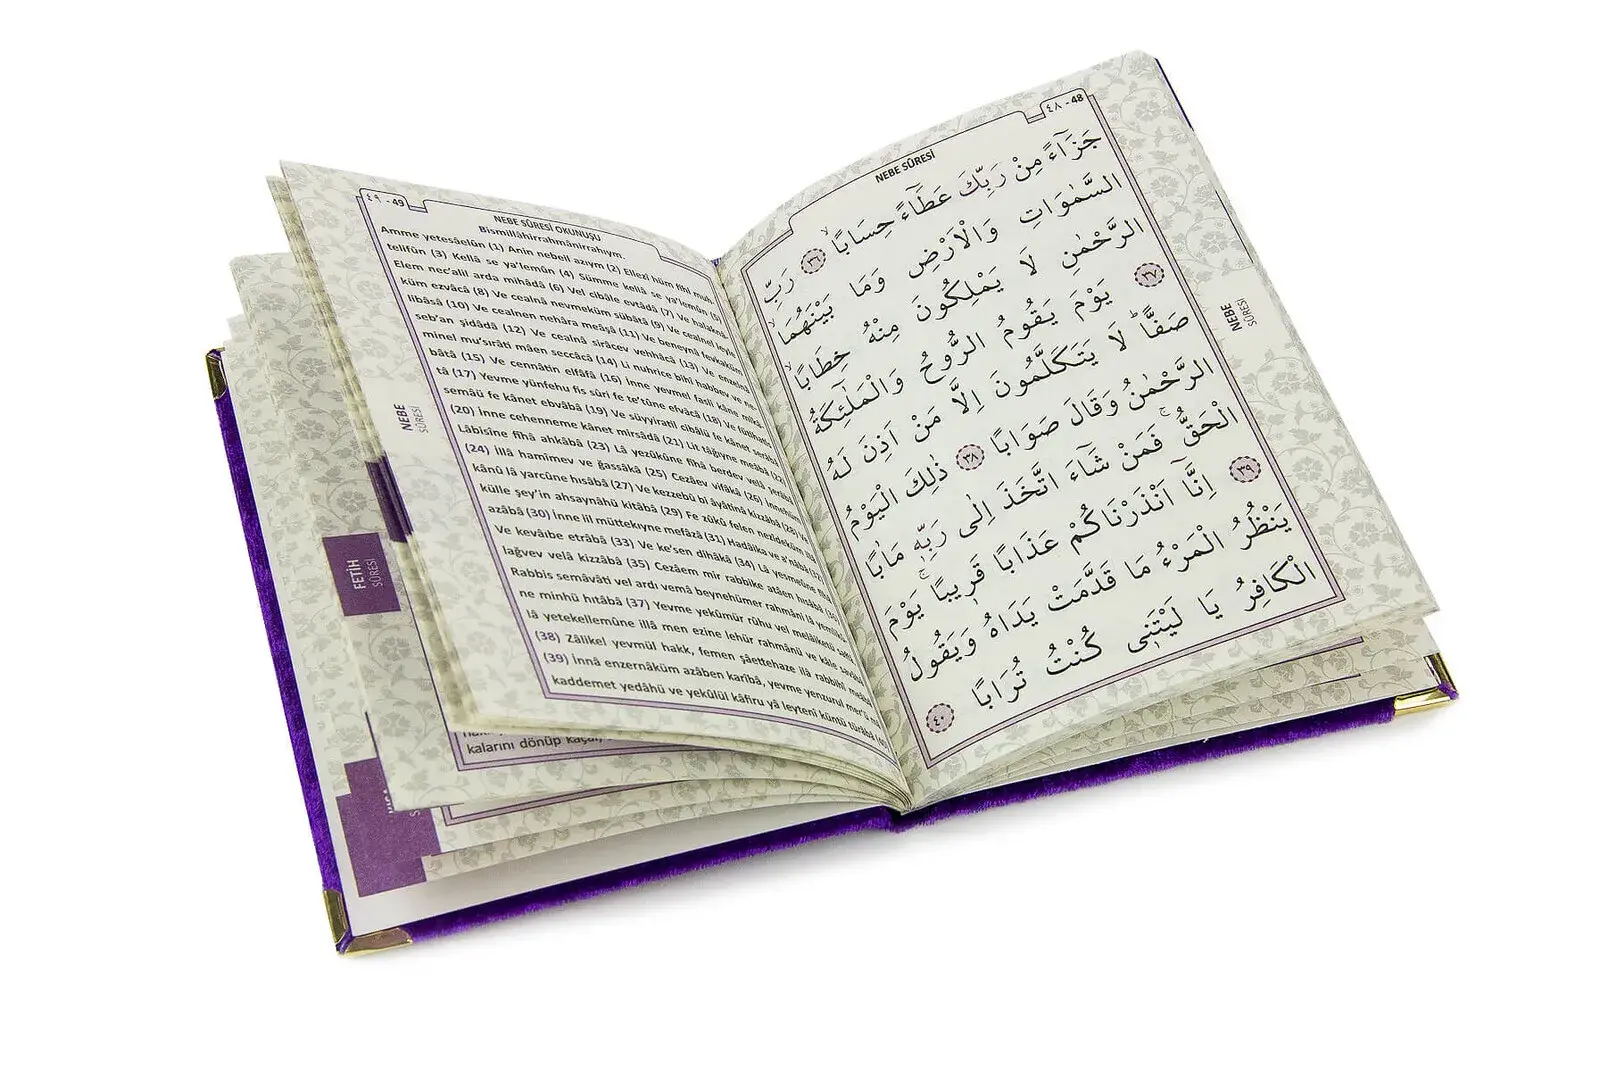 ٤٨ - 48
NEBE SÛRESİ
جَزَٓاءً مِنْ رَبِّكَ عَطَٓاءً حِسَابًاۙ ﴿٣٦﴾ رَبِّ
السَّمٰوَاتِ وَالْاَرْضِ وَمَا بَيْنَهُمَا
الرَّحْمٰنِ لَا يَمْلِكُونَ مِنْهُ خِطَابًاۚ
﴿٣٧﴾ يَوْمَ يَقُومُ الرُّوحُ وَالْمَلٰٓئِكَةُ
صَفًّاۜ لَا يَتَكَلَّمُونَ اِلَّا مَنْ اَذِنَ لَهُ
الرَّحْمٰنُ وَقَالَ صَوَابًا ﴿٣٨﴾ ذٰلِكَ الْيَوْمُ
الْحَقُّۚ فَمَنْ شَٓاءَ اتَّخَذَ اِلٰى رَبِّه۪ مَاٰبًا
﴿٣٩﴾ اِنَّٓا اَنْذَرْنَاكُمْ عَذَابًا قَر۪يبًاۚ يَوْمَ
يَنْظُرُ الْمَرْءُ مَا قَدَّمَتْ يَدَاهُ وَيَقُولُ
الْكَافِرُ يَا لَيْتَن۪ي كُنْتُ تُرَابًا ﴿٤٠﴾
NEBE
SÛRESİ
٤٩ - 49
NEBE SÛRESİ OKUNUŞU
Bismillâhirrahmânirrahıym.
Amme yetesâelûn (1) Anin nebeil azıym (2) Ellezî hüm fîhi muh-
telifûn (3) Kellâ se ya'lemûn (4) Sümme kellâ se ya'lemûn (5)
Elem nec'alil arda mihâdâ (6) Vel cibâle evtâdâ (7) Ve halaknâ-
küm ezvâcâ (8) Ve cealnâ nevmeküm sübâtâ (9) Ve cealnel leyle
libâsâ (10) Ve cealnen nehâra meâşâ (11) Ve beneynâ fevkaküm
seb'an şidâdâ (12) Ve cealnâ sirâcev vehhâcâ (13) Ve enzelnâ
minel mu'sırâti mâen seccâcâ (14) Li nuhrice bihî habbev ve ne-
bâtâ (15) Ve cennâtin elfâfâ (16) İnne yevmel fasli kâne mîkâ-
tâ (17) Yevme yünfehu fis sûri fe te'tûne efvâcâ (18) Ve fütihatis
semâü fe kânet ebvâbâ (19) Ve süyyiratil cibâlü fe kânet serâbâ
(20) İnne cehenneme kânet mirsâdâ (21) Lit tâğıyne meâbâ (22)
Lâbisîne fîhâ ahkâbâ (23) Lâ yezûkûne fîhâ berdev velâ şerâbâ
(24) İllâ hamîmev ve ğassâkâ (25) Cezâev vifâkâ (26) İnnehüm
kânû lâ yarcûne hısâbâ (27) Ve kezzebû bi âyâtinâ kizzâbâ (28) Ve
külle şey'in ahsaynâhü kitâbâ (29) Fe zûkû felen nezîdeküm
azâbâ (30) İnne lil müttekıyne mefâzâ (31) Hadâika ve a'nâbâ (32)
Ve kevâıbe etrâbâ (33) Ve ke'sen dihâkâ (34) Lâ yesmeûne
lağvev velâ kizzâbâ (35) Cezâem mir rabbike atâen hısâbâ (36)
Rabbis semâvâti vel ardı vemâ beynehümer rahmâni lâ
ne minhü hıtâbâ (37) Yevme yekûmür rûhu vel melâiketü saffâ
lâ yetekellemûne illâ men ezine lehür rahmânü ve kâle savâbâ
(38) Zâlikel yevmül hakk, femen şâettehaze ilâ rabbihî meâbâ
(39) İnnâ enzernâküm azâben karîbâ, yevme yenzurul mer'ü mâ
kaddemet yedâhü ve yekûlül kâfiru yâ leytenî küntü türâbâ (40)
NEBE
SÛRESİ
FETİH
SÛRESİ
kalarını dönüp kaçar,